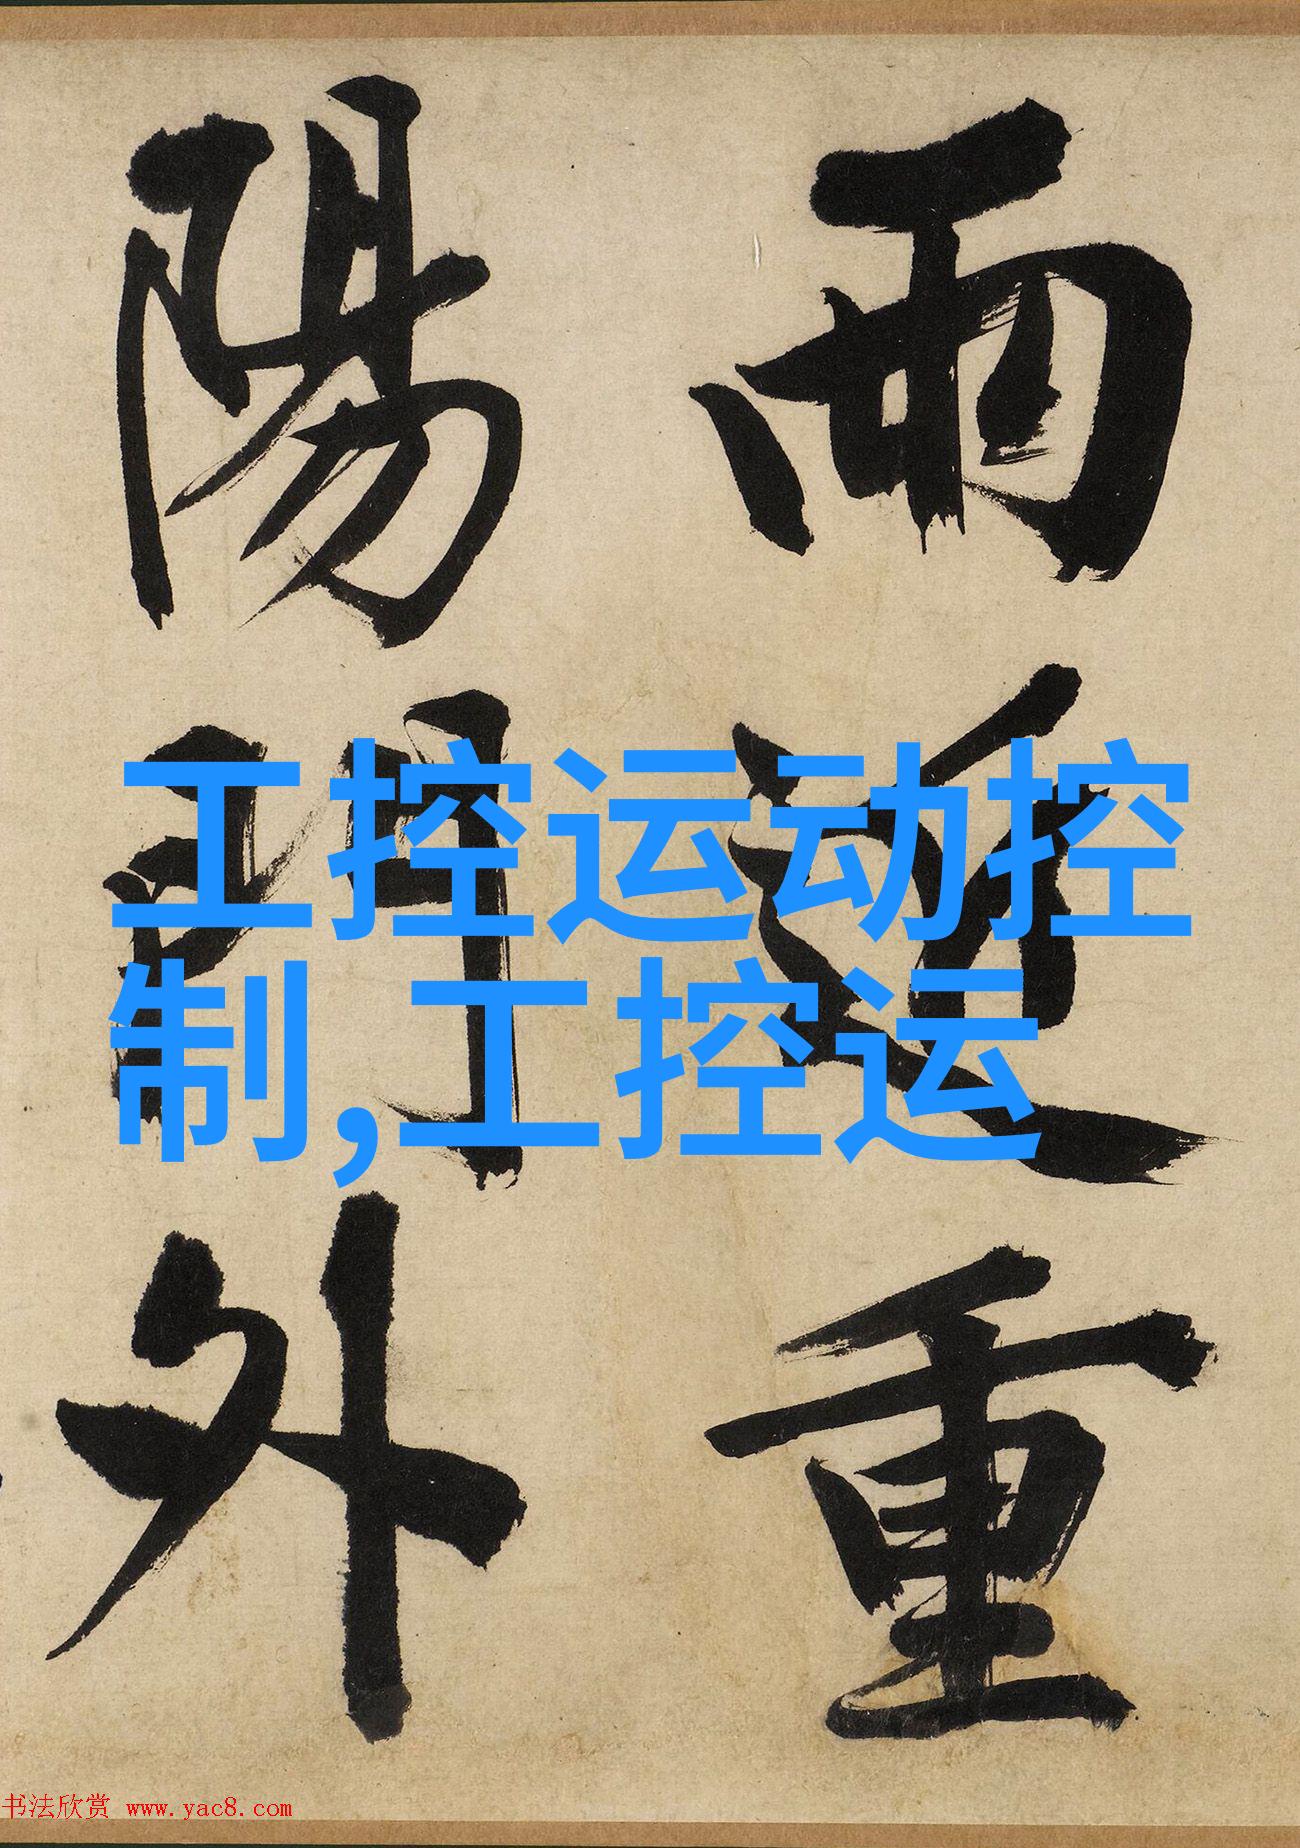 雨近重
陽門外
工控运动控
制,工控运
书法欣赏 www.yac8.com